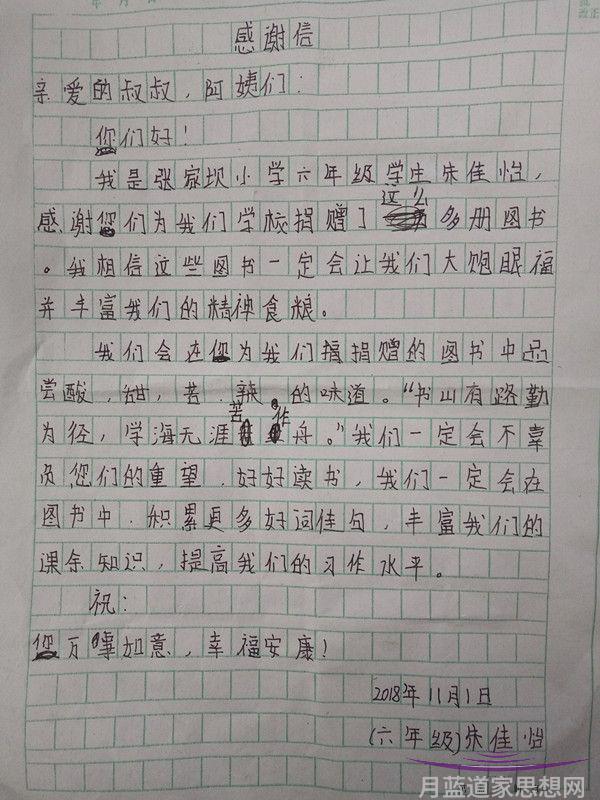 感谢信
亲爱的叔叔，阿姨们：
您们好！
我是张家坝小学六年级学生朱佳怡，
感谢您们为我们学校捐赠了这么多册图书
。我相信这些图书一定会让我们大饱眼福
并丰富我们的精神食粮。
我们会在您为我们捐赠的图书中品
尝酸，甜，苦，辣。的味道。“书山有路勤
为径，学海无涯苦作舟。”我们一定会不辜
负您们的重望，好好读书，我们一定会在
图书中，积累更多好词佳句，丰富我们的
课余知识，提高我们的习作水平。
祝：
您万事如意，幸福安康！
2018年11月1日
（六年级）朱佳怡
月蓝道家思想网